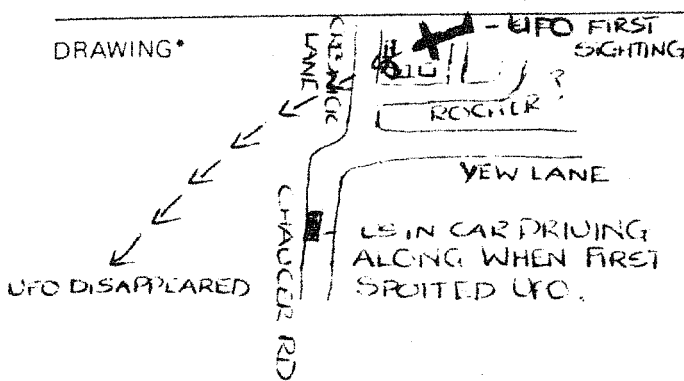 DRAWING*
- UFO FIRST
SIGHTING
LANE
ROCHER ?
YEW LANE
CHAUCER RD
US IN CAR DRIVING
ALONG WHEN FIRST
SPOTTED UFO.
UFO DISAPPEARED